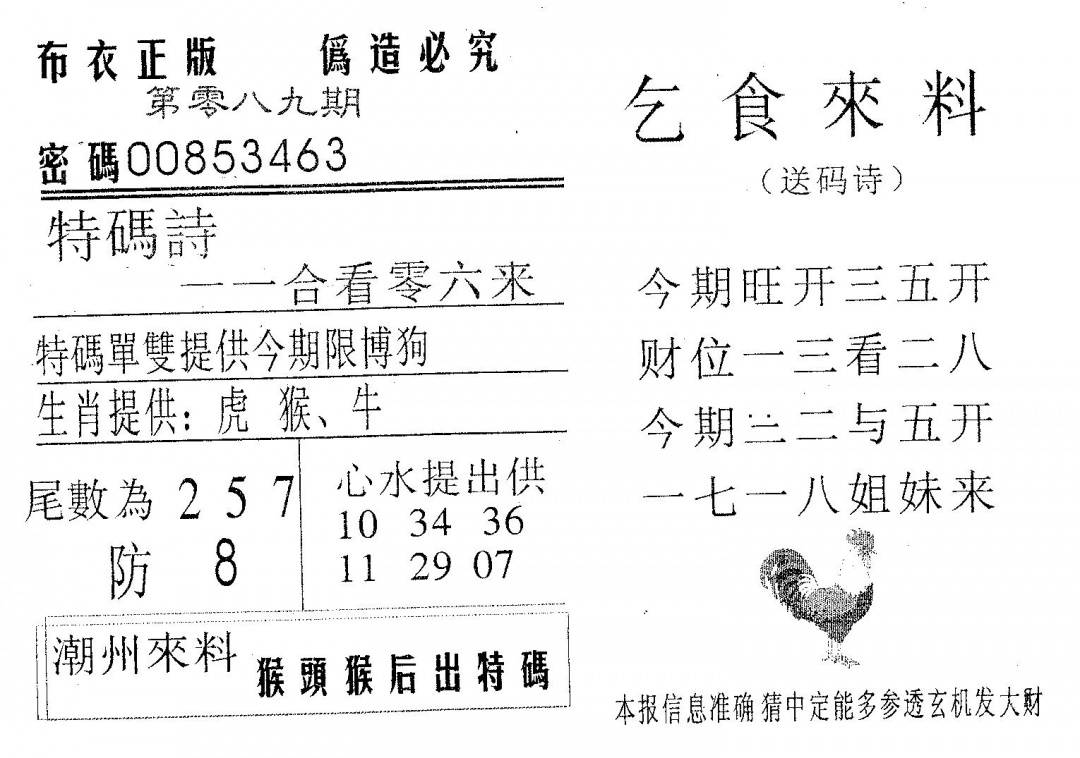 布衣正版 僞造必究
第零八九期
密碼00853463
特碼詩
一一合看零六来
特碼單雙提供今期限博狗
生肖提供：虎 猴、牛
尾數為 2 5 7
防 8
心水提出供
10 34 36
11 29 07
潮州來料
猴頭猴后出特碼
乞食來料
（送码诗）
今期旺开三五开
财位一三看二八
今期三二与五开
一七一八姐妹来
本报信息准确猜中定能多参透玄机发大财